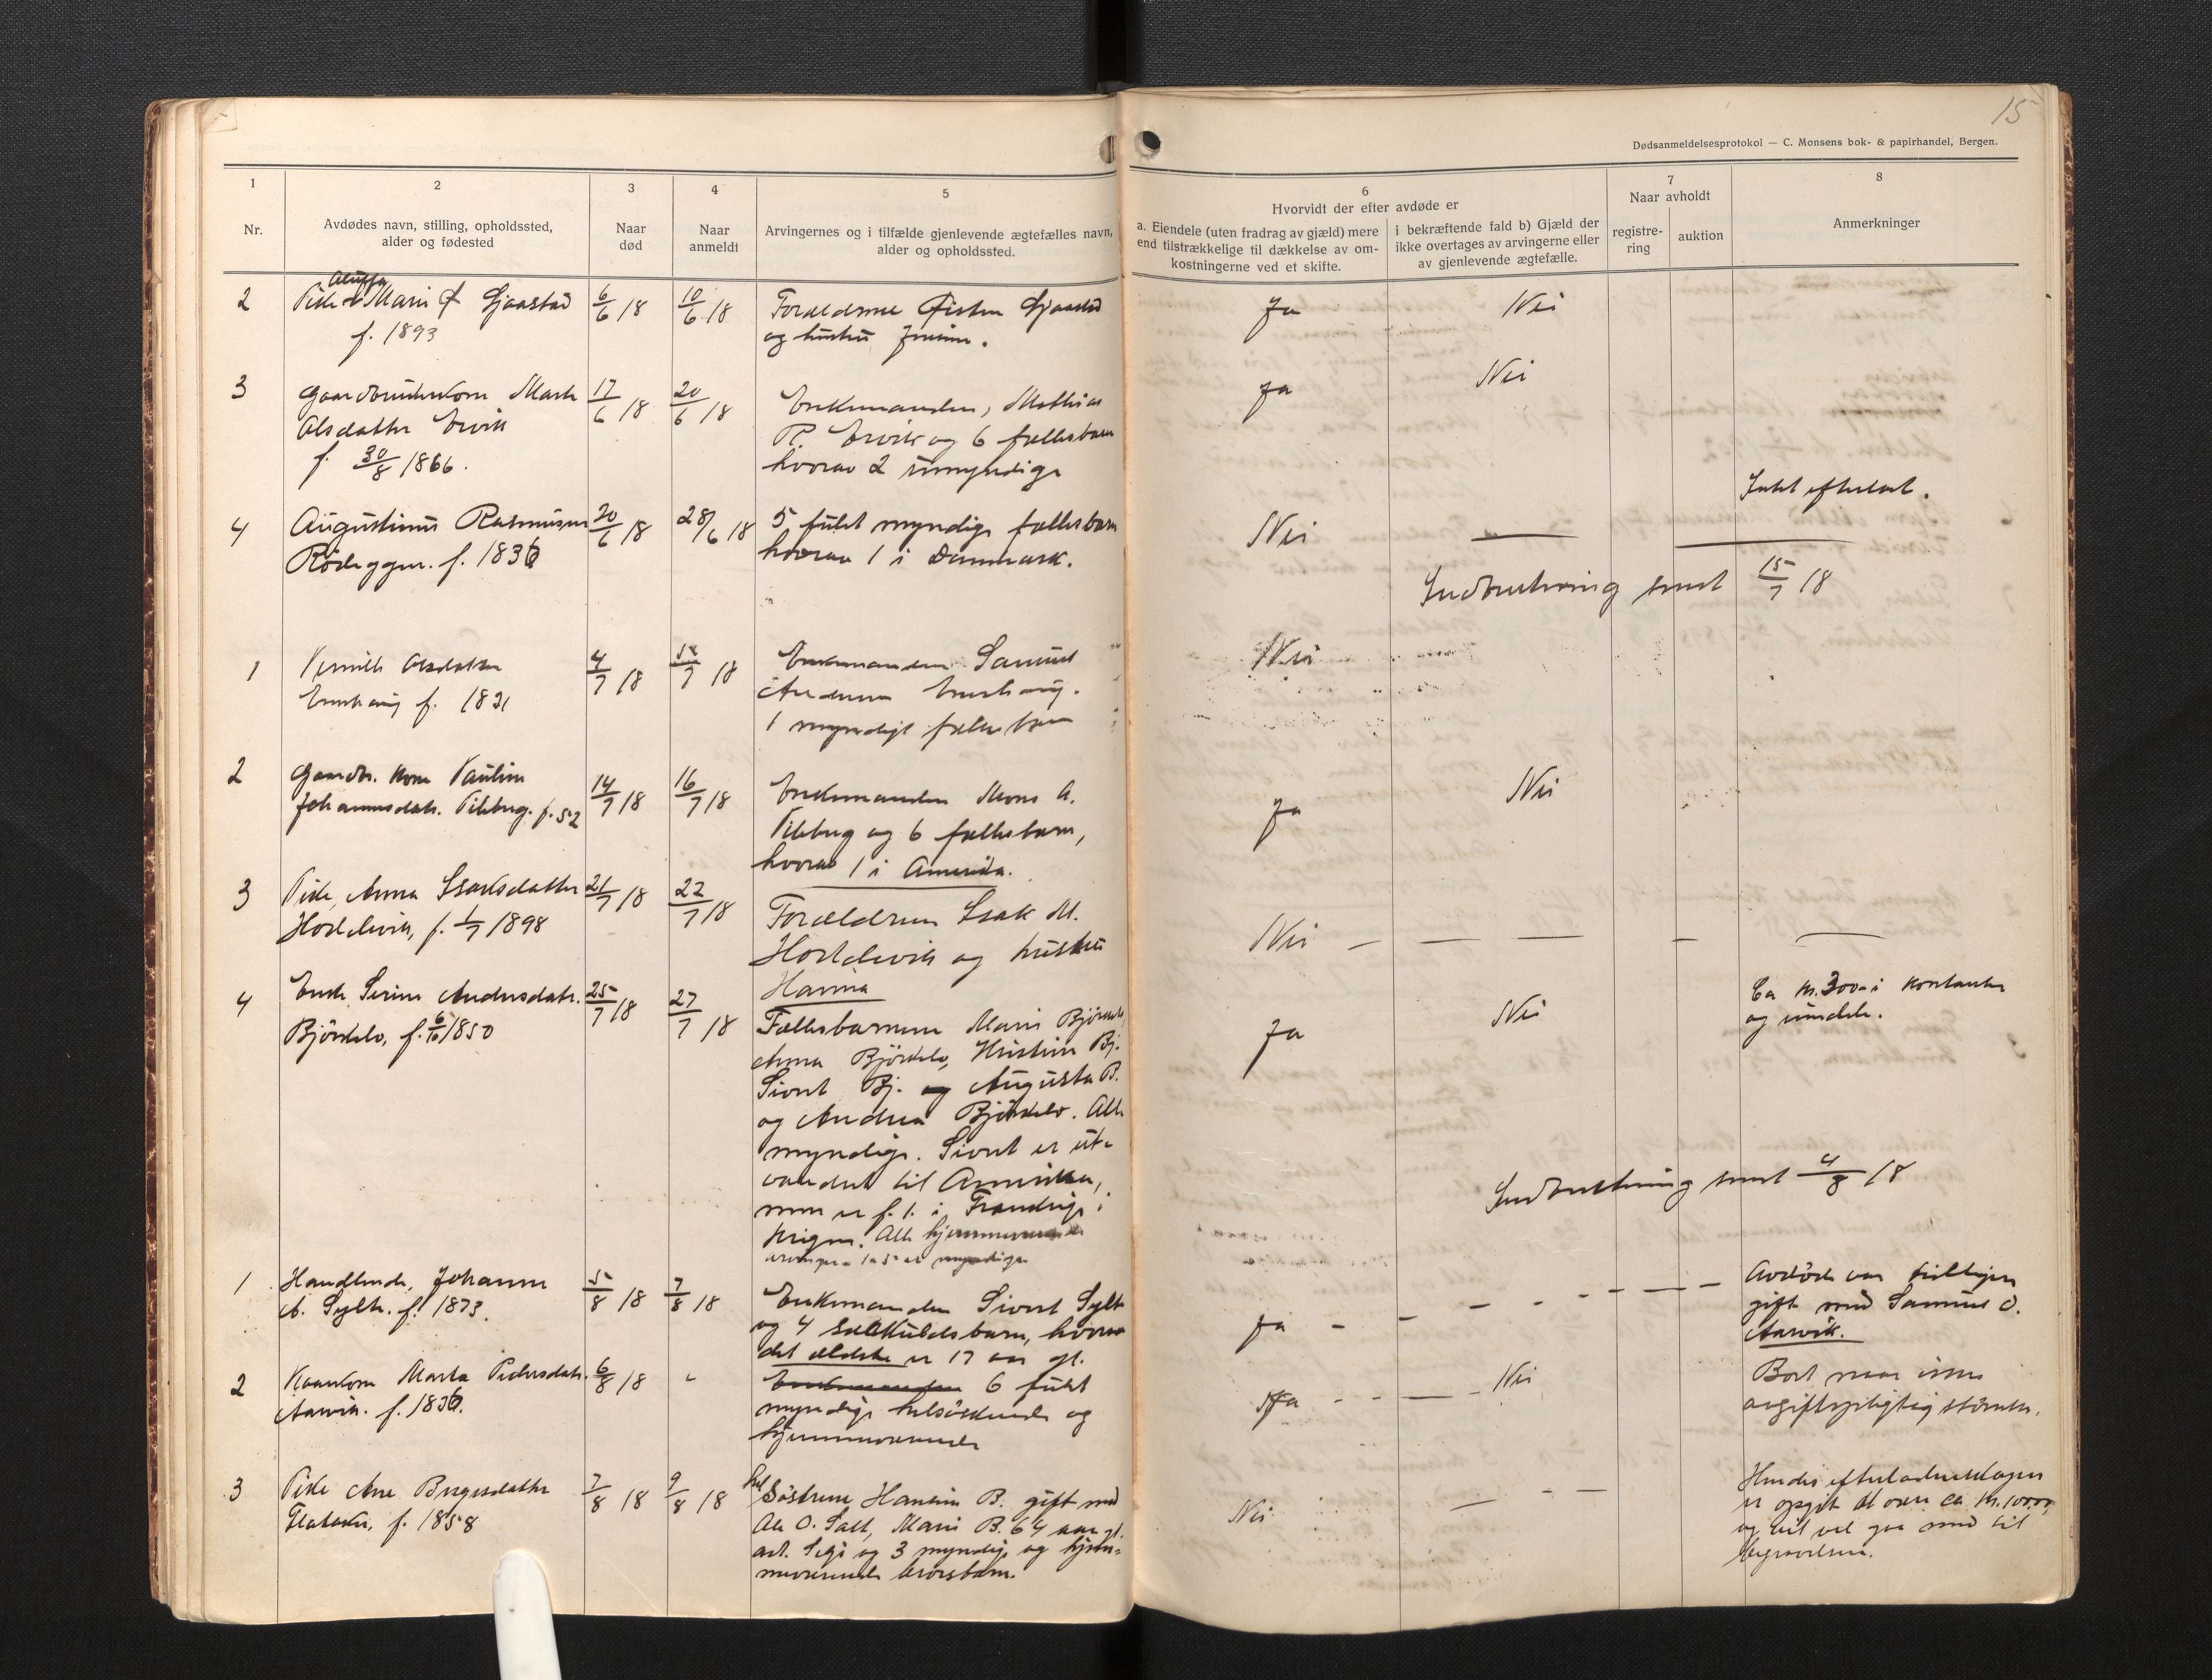 15
Dødsanmeldelsesprotokol — C. Monsens bok- & papirhandel, Bergen.
1
Nr.
2
Avdødes navn, stilling, opholdssted,
alder og fødested
3
Naar
død
4
Naar
anmeldt
5
Arvingernes og i tilfælde gjenlevende ægtefælles navn,
alder og opholdssted.
6
Hvorvidt der efter avdøde er
a. Eiendele (uten fradrag av gjæld) mere
end tilstrækkelige til dækkelse av om-
kostningerne ved et skifte.
i bekræftende fald b) Gjæld der
ikke overtages av arvingerne eller
av gjenlevende ægtefælle.
7
Naar avholdt
registre-
ring
auktion
8
Anmerkninger
2
Marie Ø Gjaastad
f. 1893
6/6 18
10/6 18
Forældrene Øisten Gjaastad
og hustru
Ja
Nei
3
Gaardbrukerkone Marte
Olsdatter Ervik
f. 30/8 1866.
17/6 18
20/6 18
Enkemanden, Mathias
R. Ervik og 6 fællesbarn
hvorav 2 umyndige
Ja
Nei
4
Augustinus Rasmussen
f. 1836
20/6 18
28/6 18
5 fuldt myndige fællesbarn
hvorav 1 i Danmark.
Nei
Intet efterlatt.
Indberetning sendt 15/7 18
1
Pernille Olsdatter
f. 1831
4/7 18
5/7 18
Enkemanden Samuel
Andersen
1 myndigt fællesbarn
Nei
2
Gaardbr. kone Pauline
Johannesdatr. f. 52
14/7 18
16/7 18
Enkemanden Mons A.
og 6 fællesbarn,
hvorav 1 i Amerika.
Ja
Nei
3
Pike, Anna Isaksdatter
Hoddevik, f. 1/7 1898
21/7 18
22/7 18
Forældrene Isak M.
Hoddevik og hustru
Hanna
Nei
4
Enke, Serine Andersdatr.
Björkelo, f. 6/10 1850
25/7 18
27/7 18
Fællesbarnene Marie Björkelo,
Anna Björkelo, Kristine Bj.
Sivert Bj. og Augusta B.
og Andrea Björkelo. Alle
myndige. Sivert er ut-
vandret til Amerika,
men er f. t. i Frankrige i
krigen. Alle hjemmeværende
arvinger er myndige
Ja
Nei
Ca kr. 300- i kontanter
og eiendele.
Indberetning sendt 4/8 18
1
Handlende, Johanne
A. Sylte. f. 1873.
5/8 18
7/8 18
Enkemanden Sivert Sylte
og 4 særkuldsbarn, hvorav
det ældste er 17 aar gl.
Ja
Avdöde var tidligere
gift med Samuel O.
Aarvik.
2
Kaarkone Marta Pedersdatr.
Aarvik. f. 1836.
6/8 18
"
Enkemanden 6 fuldt
myndige helsöskende og
hjemmeværende
Ja
Nei
Boet naar ikke
avgiftspligtig störrelse.
3
Pike Ane Bergesdatter
Flatøker, f. 1858
7/8 18
9/8 18
hel
Söstrene Hansine B. gift med
Ole O. Salt, Marie B. 64 aar gl.
og 3 myndige og hjem-
meværende brorsbarn.
Nei
Hendes efterladenskaper
er opgit at være ca. kr. 100.00
og vil vel gaa med til
begravelsen.